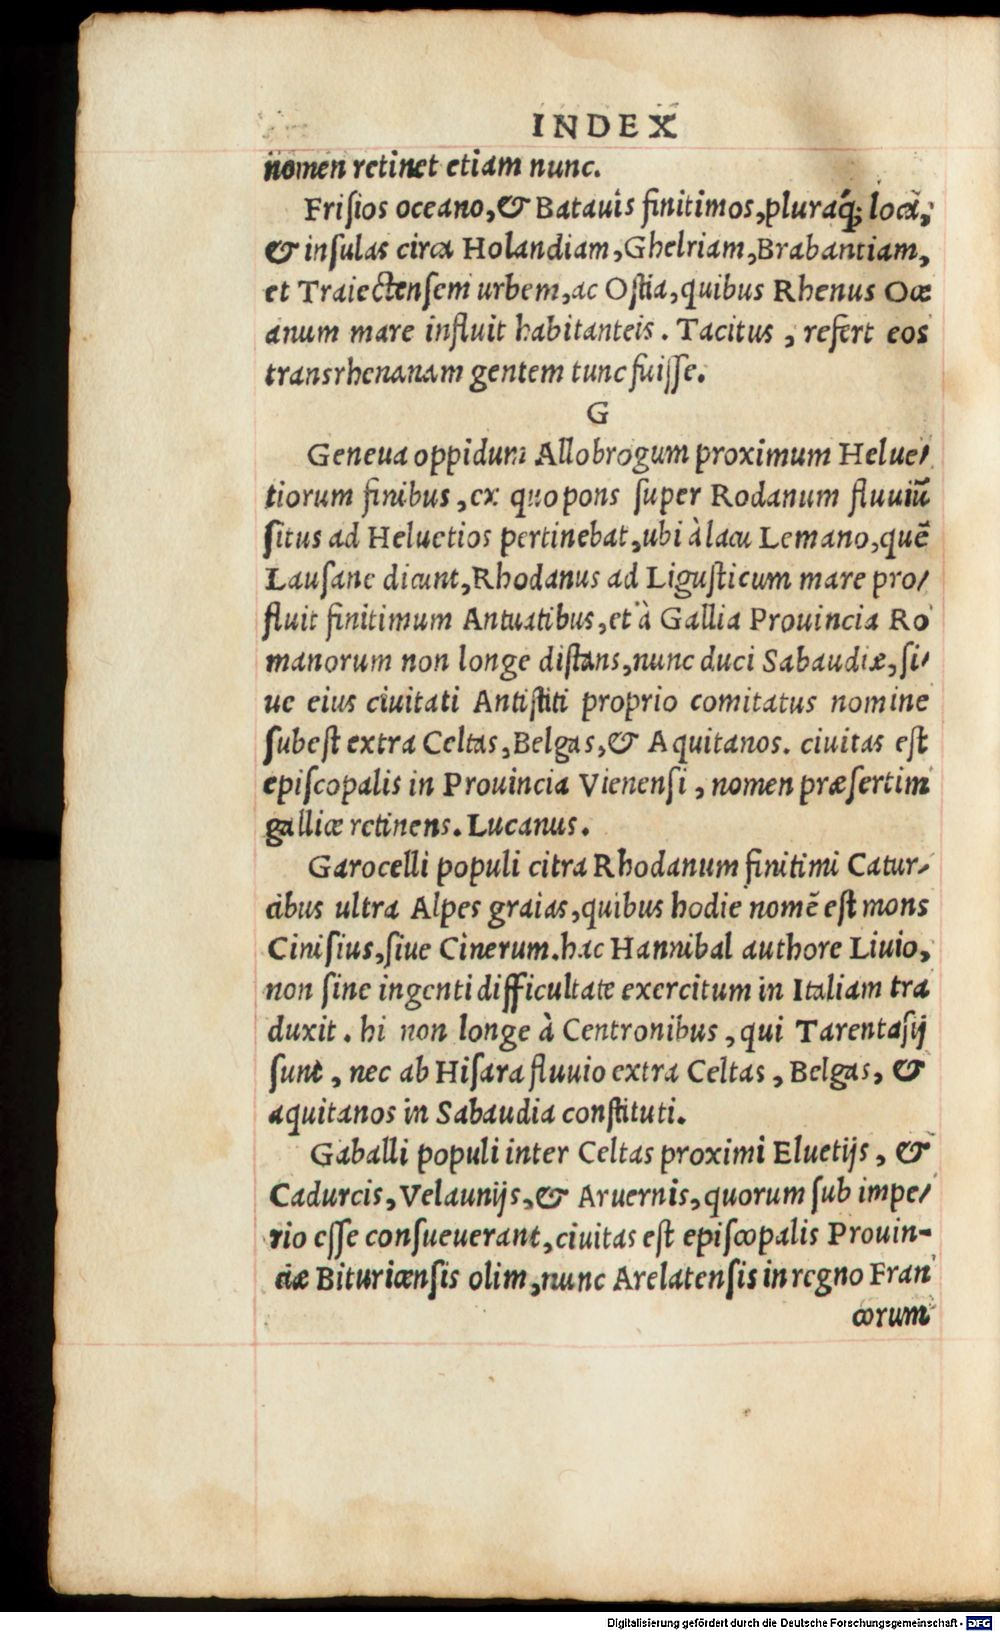 INDEX
nomen retinet etiam nunc.
Friſios oceano,& Batauis finitimos,pluraq́; loca,
& inſulas circa Holandiam,Ghelriam,Brabantiam,
et Traiectenſem urbem,ac Oſtia,quibus Rhenus Oce
anum mare influit habitanteis. Tacitus, refert eos
transrhenanam gentem tunc fuiſſe.
G
Geneua oppidum Allobrogum proximum Helue/
tiorum finibus, ex quo pons ſuper Rodanum fluuiū
ſitus ad Heluetios pertinebat,ubi à lacu Lemano,quē
Lauſane dicunt,Rhodanus ad Liguſticum mare pro/
fluit finitimum Antuatibus,et à Gallia Prouincia Ro
manorum non longe diſtans,nunc duci Sabaudiæ,ſi/
ue eius ciuitati Antiſtiti proprio comitatus nomine
ſubeſt extra Celtas,Belgas,& Aquitanos. ciuitas eſt
epiſcopalis in Prouincia Vienenſi, nomen præſertim
gallice retinens. Lucanus.
Garocelli populi citra Rhodanum finitimi Catur/
cibus ultra Alpes graias,quibus hodie nomē eſt mons
Ciniſius,ſiue Cinerum.hac Hannibal authore Liuio,
non ſine ingenti difficultate exercitum in Italiam tra
duxit. hi non longe à Centronibus, qui Tarentaſij
ſunt, nec ab Hiſara fluuio extra Celtas, Belgas, &
aquitanos in Sabaudia conſtituti.
Gaballi populi inter Celtas proximi Eluetijs, &
Cadurcis, Velaunijs,& Aruernis,quorum ſub impe/
rio eſſe conſueuerant,ciuitas eſt epiſcopalis Prouin-
ciæ Bituricenſis olim,nunc Arelatenſis in regno Fran
corum
Digitalisierung gefördert durch die Deutsche Forschungsgemeinschaft - DFG